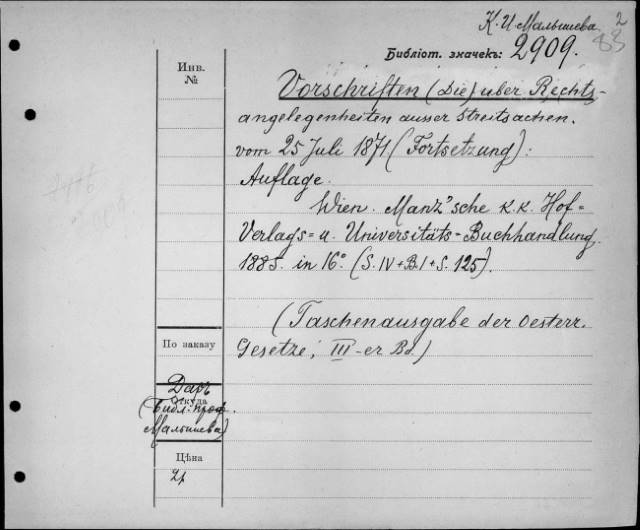 К. И. Малышева
2
83
Библіот. значекъ: 2909.
Инв.
№
Vorschriften (Die) uber Rechts-
angelegenheiten ausser Streitsachen.
vom 25 Juli 1871 (Fortsetzung):
Auflage.
Wien. Manz'sche K.K. Hof=
Verlags= u. Universitäts=Buchhandlung.
1885. in 16° (S. IV + B. I + S. 125).
(Taschenausgabe der Oesterr.
Gesetze, III-er Bd.)
По заказу
Даръ
Откуда
(Библ. проф.
Малышева)
Цѣна